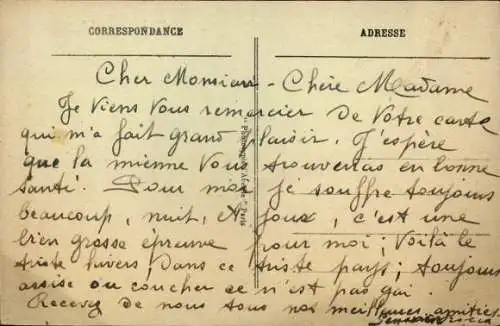 CORRESPONDANCE
ADRESSE
Cher Monsieur - Chère Madame
Je viens vous remercier de votre carte
qui m'a fait grand plaisir. J'espère
que la mienne vous trouveras en bonne
santé. Pour moi je souffre toujours
beaucoup, nuit, et jour, c'est une
bien grosse épreuve pour moi; Voilà le
triste hivers, Dans ce triste pays; toujours
assise ou coucher ce n'est pas gai.
Recevez de nous tous nos meilleures amitiés